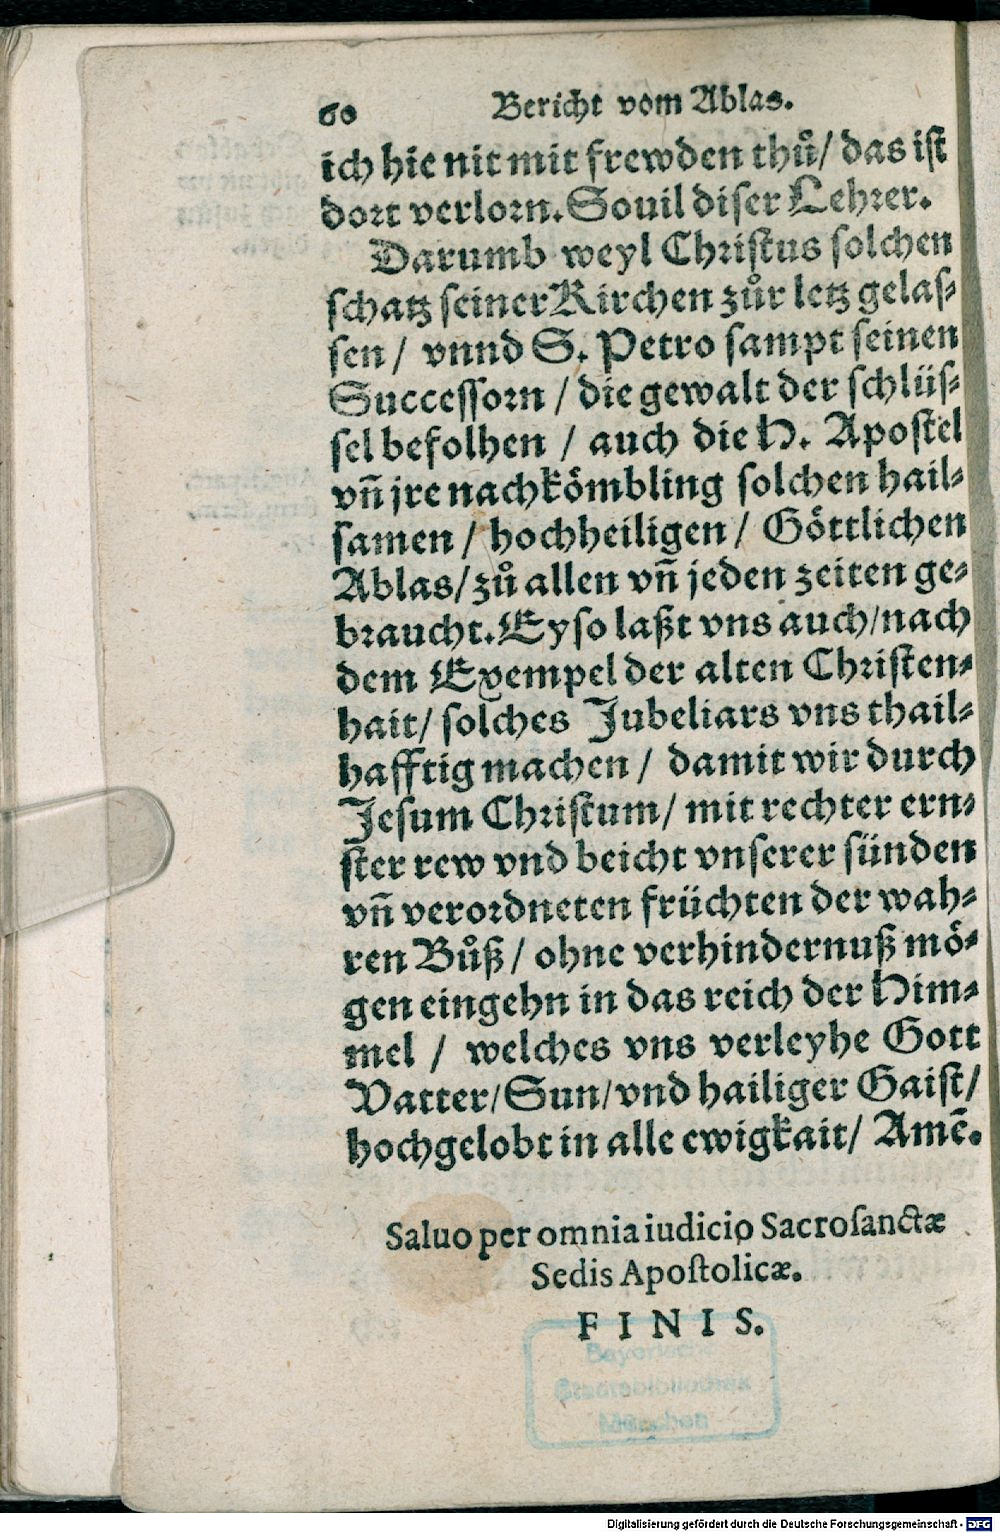 60 Bericht vom Ablas.
ich hie nit mit frewden thuͦ/ das ist
dort verlorn. Souil diser Lehrer.
Darumb weyl Christus solchen
schatz seiner Kirchen zuͦr letz gelas⸗
sen / vnnd S. Petro sampt seinen
Successorn / die gewalt der schlüs⸗
sel befolhen / auch die H. Apostel
vñ jre nachkömbling solchen hail⸗
samen / hochheiligen / Göttlichen
Ablas/ zuͦ allen vñ jeden zeiten ge⸗
braucht. Ey so laßt vns auch/ nach
dem Exempel der alten Christen⸗
hait/ solches Jubeliars vns thail⸗
hafftig machen / damit wir durch
Jesum Christum/ mit rechter ern⸗
ster rew vnd beicht vnserer sünden
vñ verordneten früchten der wah⸗
ren Buͦß / ohne verhindernuß mö⸗
gen eingehn in das reich der Him⸗
mel / welches vns verleyhe Gott
Vatter/ Sun/ vnd hailiger Gaist/
hochgelobt in alle ewigkait/ Amē.
Saluo per omnia iudicio Sacrosanctæ
Sedis Apostolicæ.
F I N I S.
Bayerische
Staatsbibliothek
München
Digitalisierung gefördert durch die Deutsche Forschungsgemeinschaft - DFG